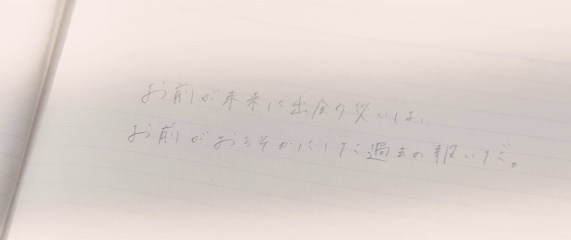 お前が未来に出会う災いは、
お前がおろそかにした過去の報いだ。